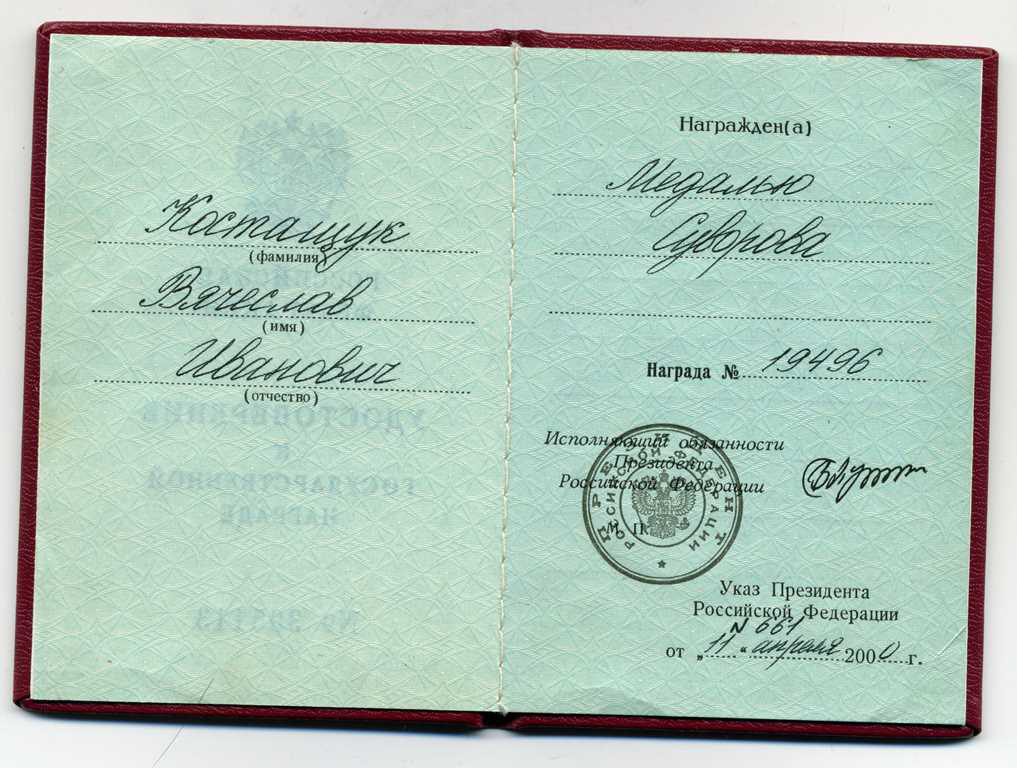 Костащук
(фамилия)
Вячеслав
(имя)
Иванович
(отчество)
УДОСТОВЕРЕНИЕ
К
ГОСУДАРСТВЕННОЙ
НАГРАДЕ
Награжден(а)
Медалью
Суворова
Награда № 19496
Исполняющий обязанности
Президента
Российской Федерации
М. П.
ПРЕЗИДЕНТ
РОССИЙСКОЙ ФЕДЕРАЦИИ
Указ Президента
Российской Федерации
N 661
от „ 11 “ апреля 2000 г.